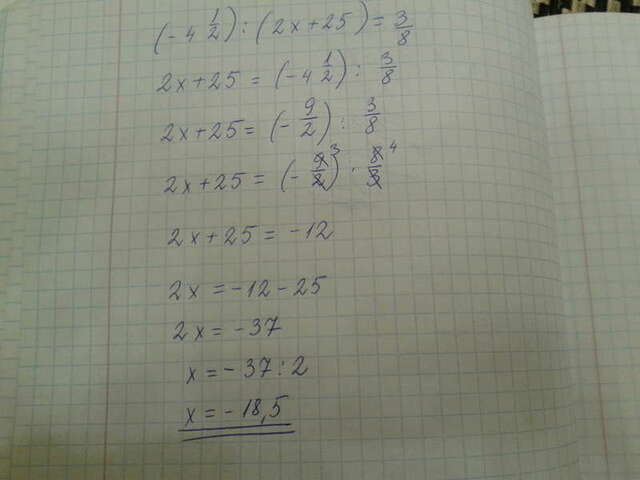 (-4 1/2) : (2x+25) = 3/8
2x+25 = (-4 1/2) : 3/8
2x+25 = (-9/2) : 3/8
2x+25 = (-9/2)³ · 8/3 ⁴
2x+25 = -12
2x = -12-25
2x = -37
x = -37:2
x = -18,5